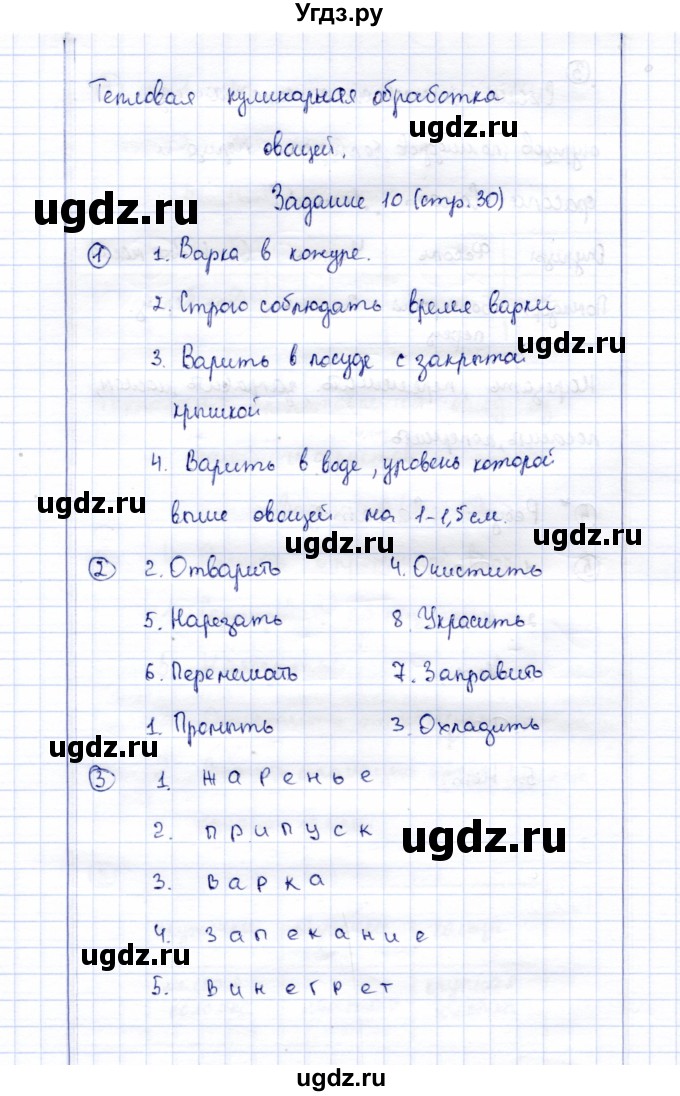 Угдз.ру
Тепловая кулинарная обработка
ugdz.ru
овощей.
ugdz.ru
Задание 10 (стр. 30)
① 1. Варка в кожуре.
2. Строго соблюдать время варки
ugdz.ru
3. Варить в посуде с закрытой
крышкой
4. Варить в воде, уровень которой
ugdz.ru
выше овощей на 1-1,5 см.
ugdz.ru
ugdz.ru
② 2. Отварить 4. Очистить
5. Нарезать 8. Украсить
6. Перемешать 7. Заправить
1. Промыть 3. Охладить
ugdz.ru
③ 1. Жаренье
2. припуск
ugdz.ru
3. варка
4. запекание
ugdz.ru
5. винегрет
ugdz.ru
ugdz.ru